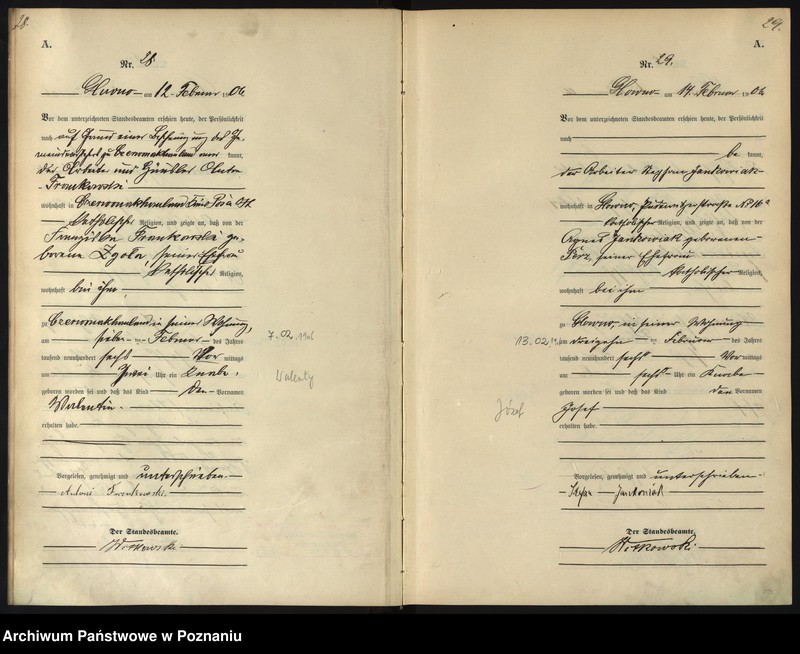 28.
A.
Nr. 28
am 12. Februar 1906
Vor dem unterzeichneten Standesbeamten erschien heute, der Persönlichkeit
nach auf Grund einer Bescheinigung des Ge-
zu kannt,
der
Frankowski
wohnhaft in
katholischer Religion, und zeigte an, daß von der
Franziska Frankowski ge-
borenen Zgola, seiner Ehefrau
katholischer Religion,
wohnhaft bei ihm,
zu in seiner Wohnung,
am sieben ten Februar des Jahres
tausend neunhundert sechs Vor mittags
um zwei Uhr ein Knabe
geboren worden sei und daß das Kind den Vornamen
Valentin
erhalten habe.
Vorgelesen, genehmigt und unterschrieben.
Antoni Frankowski.
Der Standesbeamte.
Witkowski
7.02.1906
Walenty
29.
A.
Nr. 29.
am 14. Februar 1906
Vor dem unterzeichneten Standesbeamten erschien heute, der Persönlichkeit
nach
be kannt,
der Arbeiter Jankowiak
wohnhaft in
katholischer Religion, und zeigte an, daß von der
Agnes Jankowiak geborenen
seiner Ehefrau
katholischer Religion,
wohnhaft bei ihm
zu in seiner Wohnung
am dreizehn ten Februar des Jahres
tausend neunhundert sechs Vor mittags
um sechs Uhr ein Knabe
geboren worden sei und daß das Kind den Vornamen
Josef
erhalten habe.
Vorgelesen, genehmigt und unterschrieben.
Jankowiak
Der Standesbeamte.
Witkowski
13.02
Józef
Archiwum Państwowe w Poznaniu